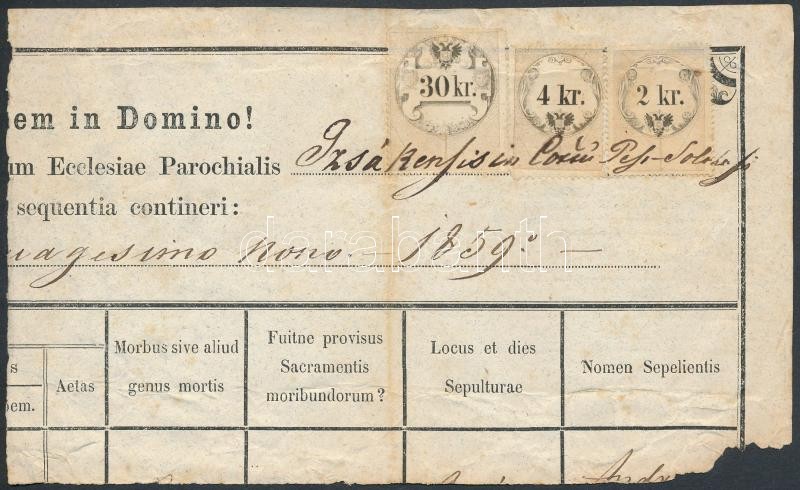 30 kr.
4 kr.
2 kr.
em in Domino!
um Ecclesiae Parochialis Izsákensis in Cottu Pest-Solt
sequentia contineri:
uagesimo nono - 1859º -
darabanth
s
oem.
Aetas
Morbus sive aliud
genus mortis
Fuitne provisus
Sacramentis
moribundorum?
Locus et dies
Sepulturae
Nomen Sepelientis